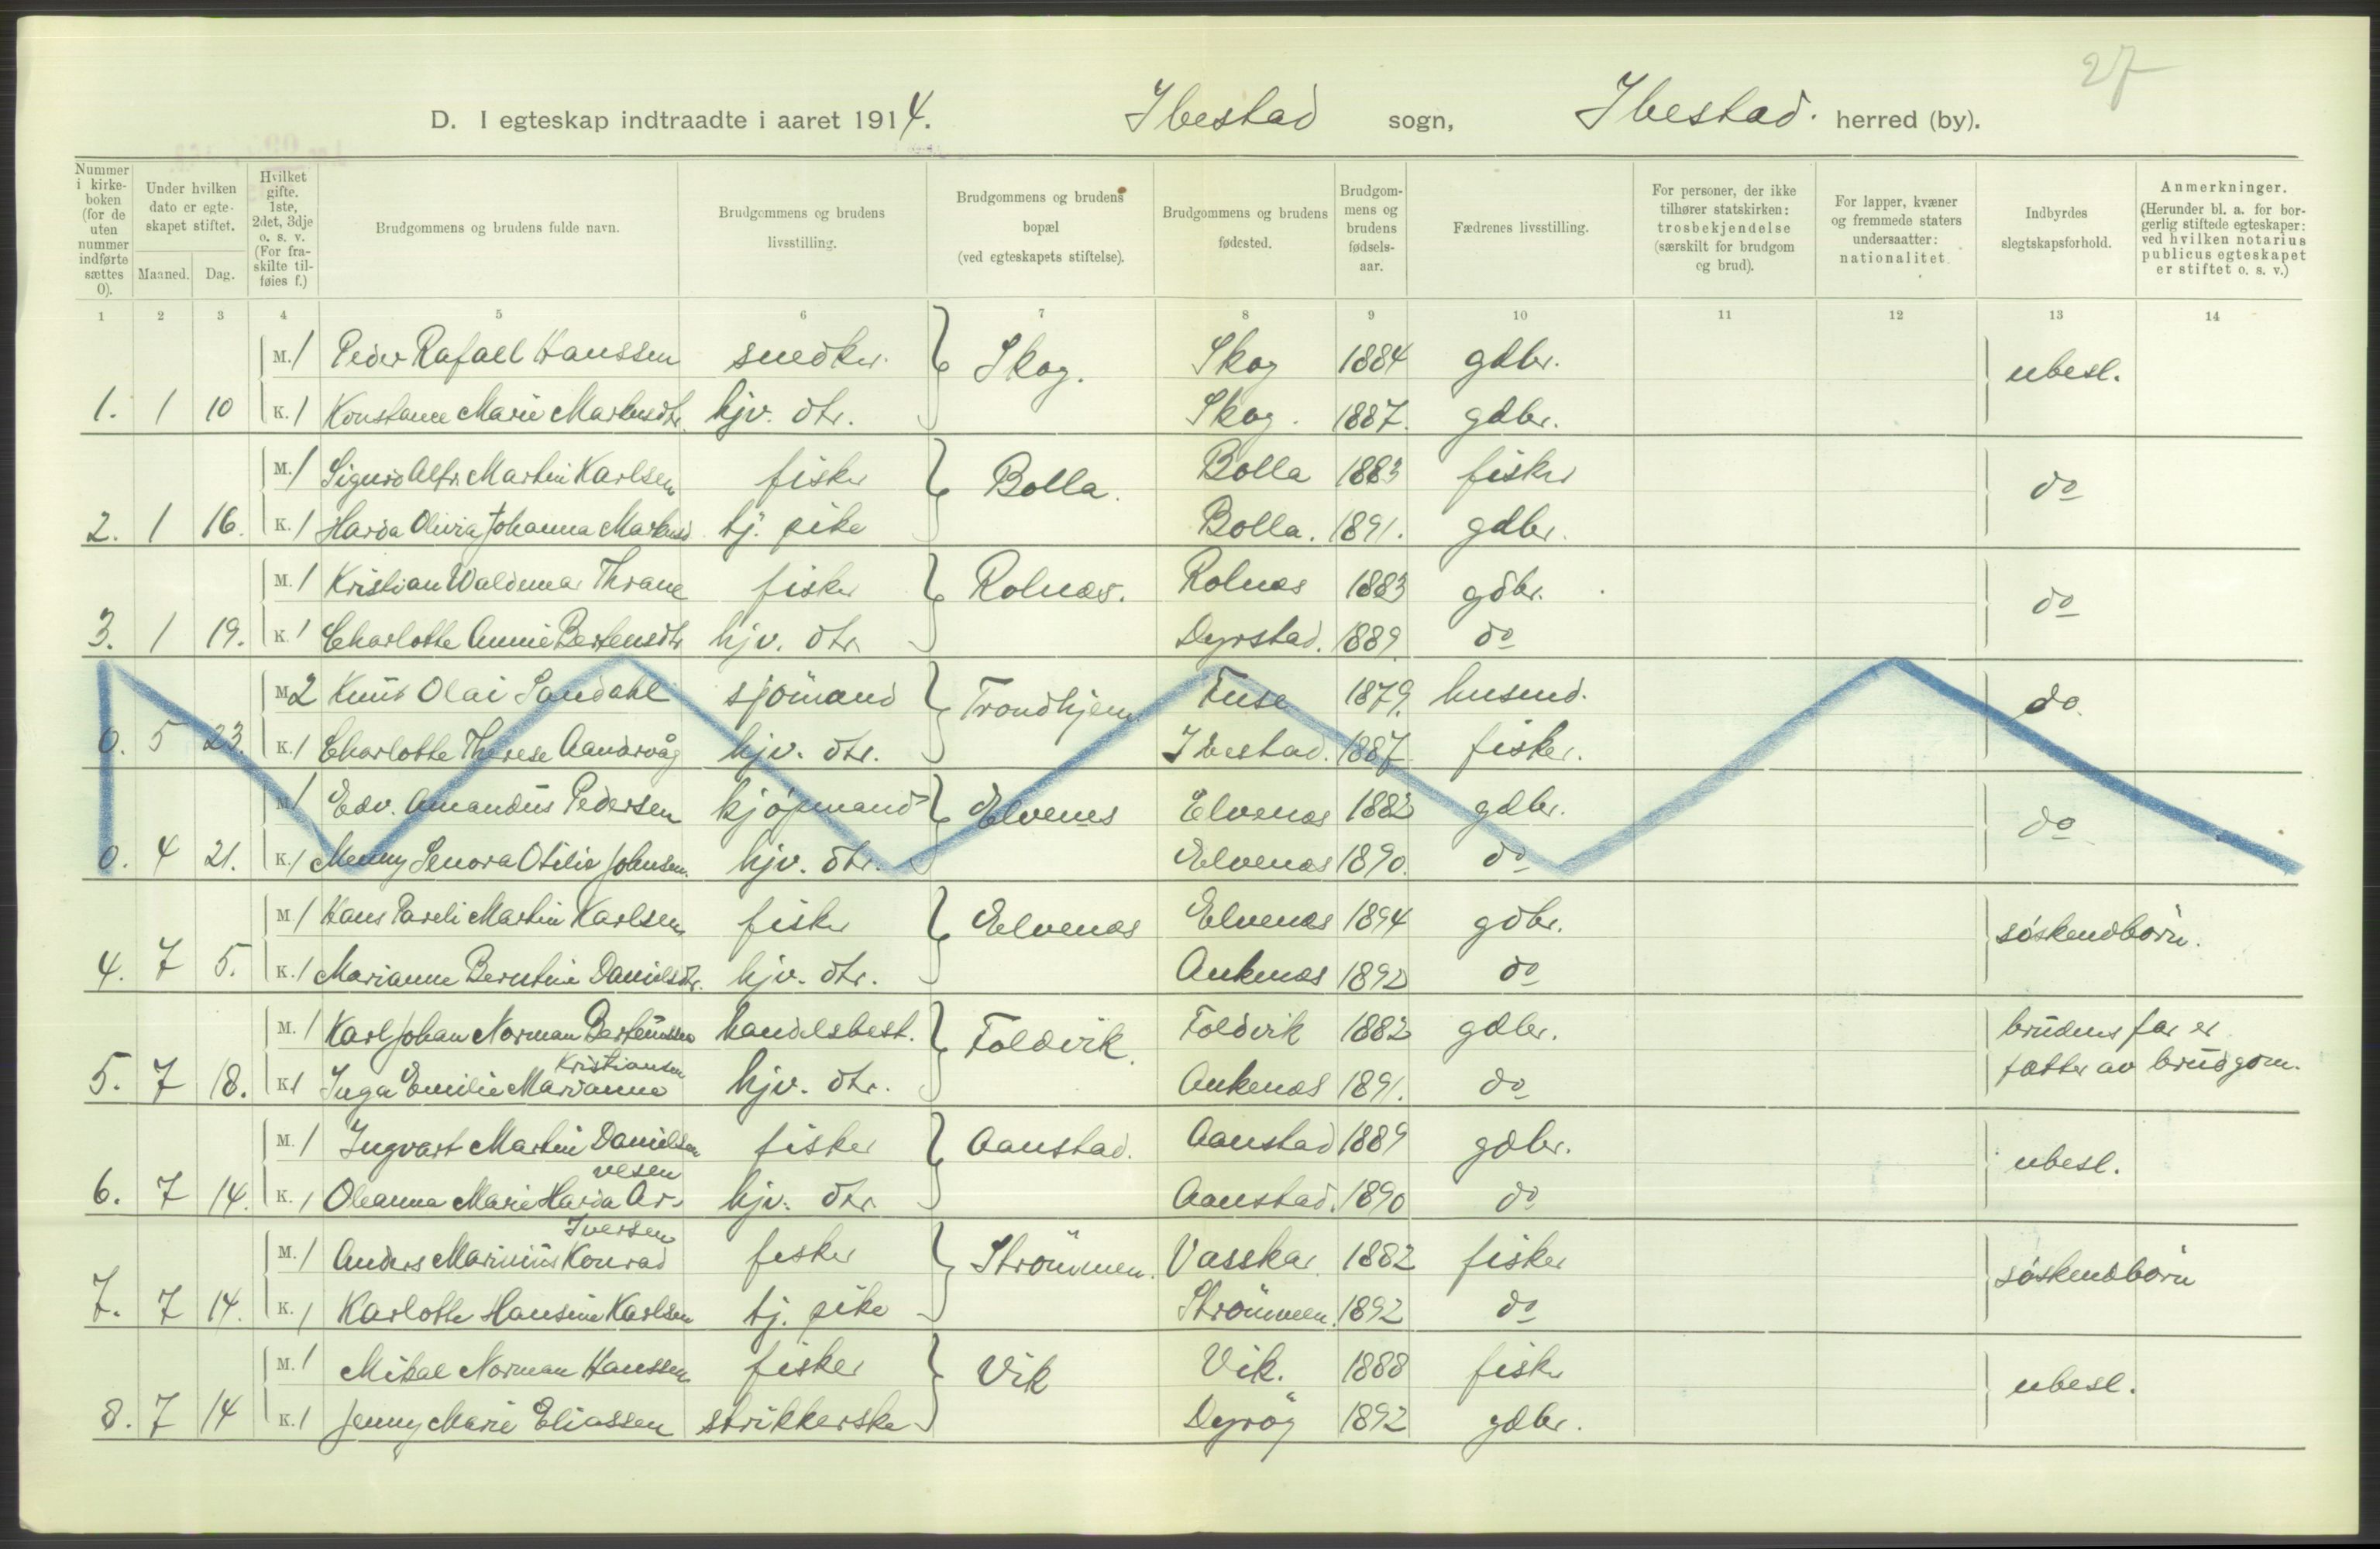 27
D. I egteskap indtraadte i aaret 1914. Ibestad sogn, Ibestad. herred (by).
Nummer i kirke-boken (for de uten nummer indførte sættes 0).
Under hvilken dato er egte-skapet stiftet.
Maaned. Dag.
Hvilket gifte. 1ste, 2det, 3dje o. s. v. (For fra-skilte til-føies f.)
Brudgommens og brudens fulde navn.
Brudgommens og brudens livsstilling.
Brudgommens og brudens bopæl (ved egteskapets stiftelse).
Brudgommens og brudens fødested.
Brudgom-mens og brudens fødsels-aar.
Fædrenes livsstilling.
For personer, der ikke tilhører statskirken: trosbekjendelse (særskilt for brudgom og brud).
For lapper, kvæner og fremmede staters undersaatter: nationalitet
Indbyrdes slegtskapsforhold.
Anmerkninger. (Herunder bl. a. for bor-gerlig stiftede egteskaper: ved hvilken notarius publicus egteskapet er stiftet o. s. v.)
1 2 3 4 5 6 7 8 9 10 11 12 13 14
M. 1 Peder Rafael Hanssen snedker. Skog. Skog 1884 gdbr. ubesl.
1. 1 10 K. 1 Konstance Marie Markusdtr. hjv. dtr. Skog. 1887. gdbr.
M. 1 Sigurd Alfr. Martin Karlsen fisker Bolla. Bolla 1883 fisker do
2. 1 16. K. 1 Harda Olivia Johanna Markusd tj. pike Bolla. 1891. gdbr.
M. 1 Kristian Waldemar Thrane fisker Rolnæs. Rolnæs 1883 gdbr. do
3. 1 19. K. 1 Charlotte Annie Bertensdtr hjv. dtr. Dyrstad. 1889. do
M. 2 Knut Olai Sandahl sjömand Trondhjem Fuse 1879. husmd. do.
0. 5 23. K. 1 Charlotte Therese Aandervåg hjv. dtr. Ibestad. 1887 fisker.
M. 1 Edv. Amandus Pedersen kjøpmand Elvenes Elvenæs 1882 gdbr. do
0. 4 21. K. 1 Menny Senora Otilie Johnsen. hjv. dtr. Elvenæs 1890. do
M. 1 Hans Pareli Martin Karlsen fisker Elvenæs Elvenæs 1894 gdbr. søskendbørn.
4. 7 5. K. 1 Marianne Berntine Danielsdtr. hjv. dtr. Ankenæs 1892 do
M. 1 Karl Johan Norman Berteussen handelsbest. Foldvik. Foldvik 1882 gdbr. brudens far er
Kristiansen
5. 7 18. K. 1 Inga Emilie Marianne hjv. dtr. Ankenæs 1891. do fætter av brudgom.
M. 1 Ingvart Martin Danielsen fisker Aanstad. Aanstad 1889 gdbr. ubesl.
vesen
6. 7 14. K. 1 Oleanna Marie Harda Ar- hjv. dtr. Aanstad. 1890 do
Iversen
M. 1 Anders Marinius Konrad fisker Strömmen. Vasskar 1882 fisker søskendbørn
7. 7 14. K. 1 Karlotte Hansine Karlsen tj. pike Strömmen. 1892 do
M. 1 Mikal Norman Hanssen fisker Vik Vik. 1888 fisker ubesl.
8. 7 14 K. 1 Jenny Marie Eliassen strikkerske Dyröy 1892 gdbr.